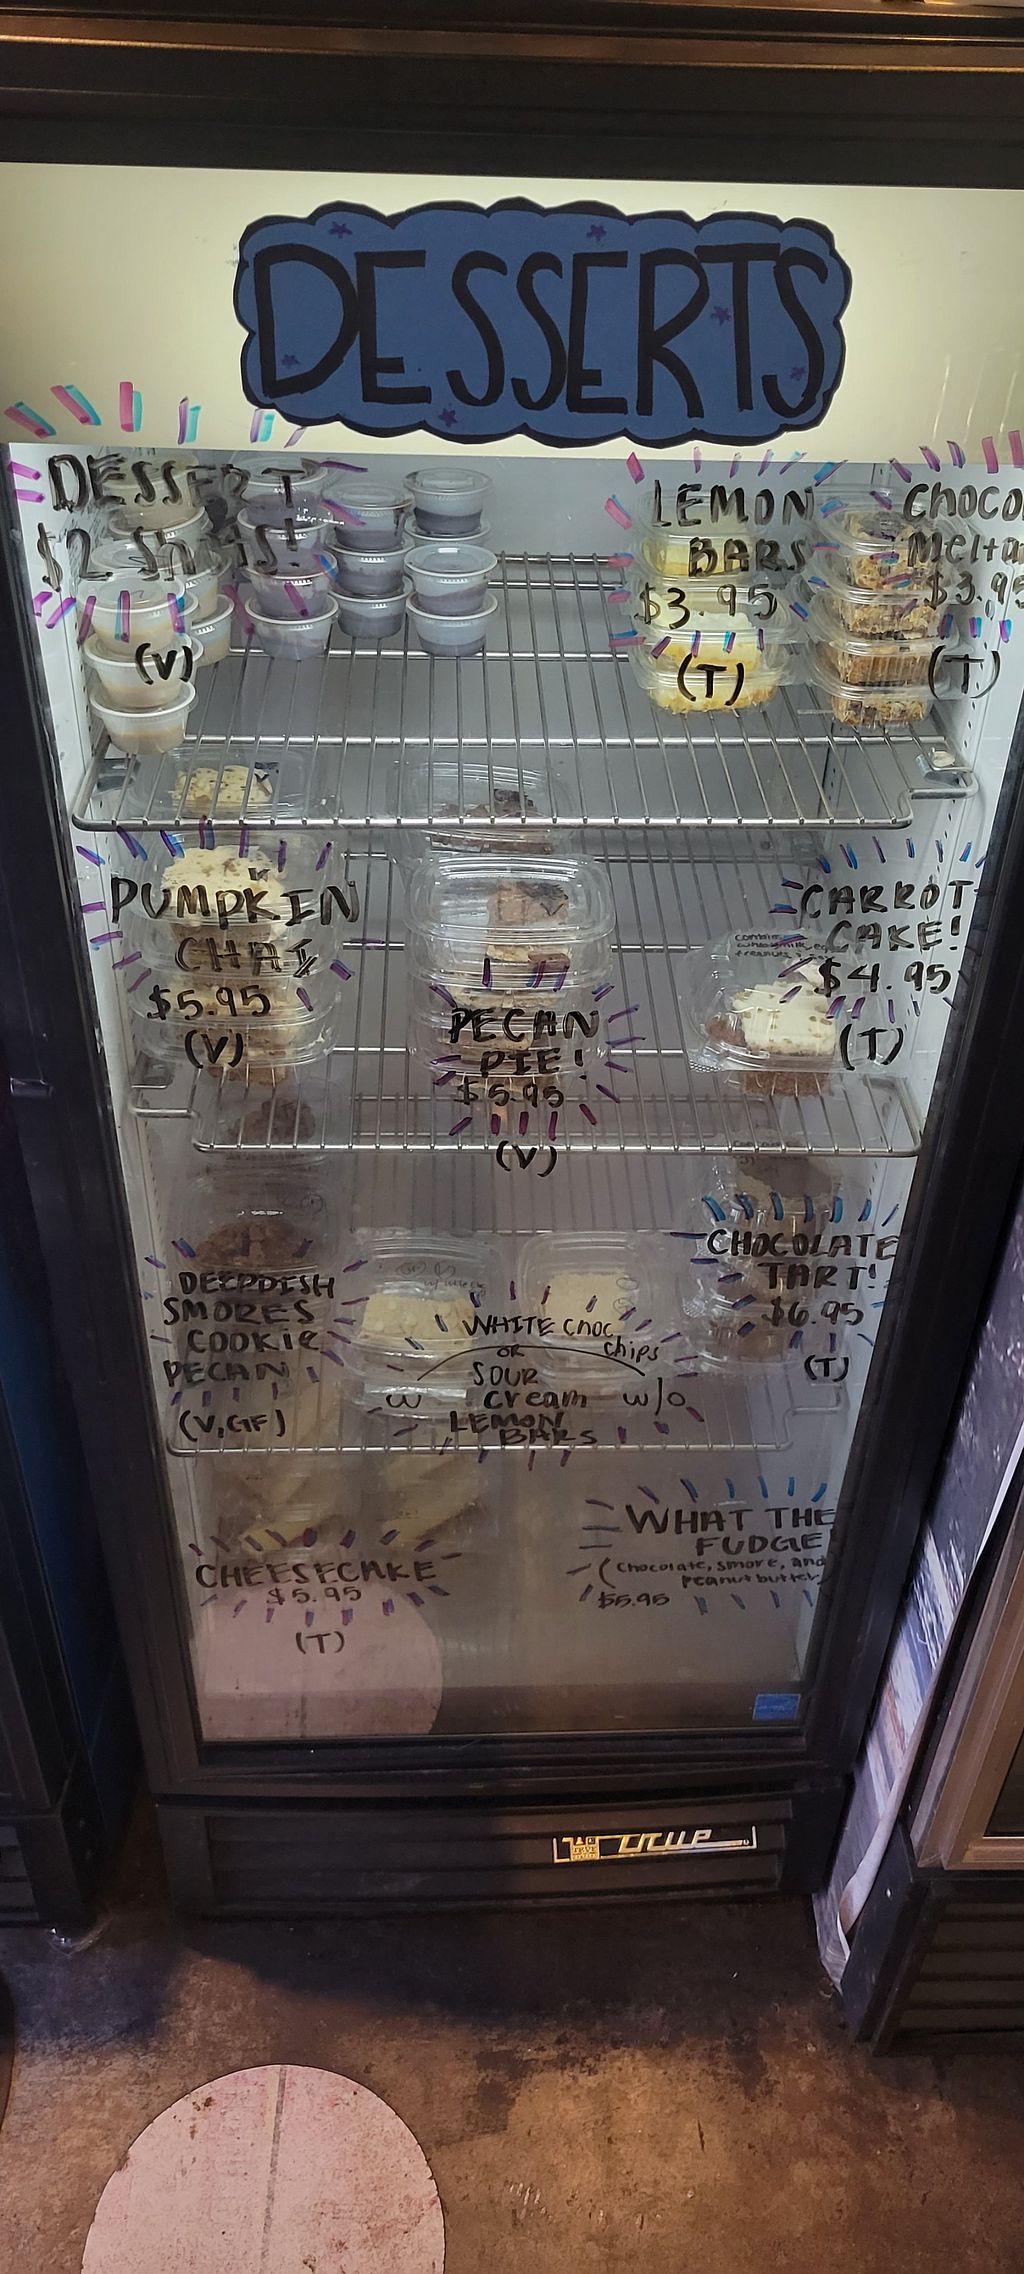 DESSERTS
DESSERT
$2 Shots!
(V)
LEMON
BARS
$3.95
(T)
CHOCO
Melta
$3.95
(T)
PUMPKIN
CHAI
$5.95
(V)
PECAN
PIE!
$5.95
(V)
CARROT
CAKE!
$4.95
(T)
DEEPDISH
SMORES
COOKIE
PECAN
(V, GF)
WHITE CHOC
chips
OR
SOUR
w cream w/o
LEMON
BARS
CHOCOLATE
TART!
$6.95
(T)
CHEESECAKE
$5.95
(T)
WHAT THE
FUDGE
(chocolate, smore, and
peanut butter)
$5.95
TRUE